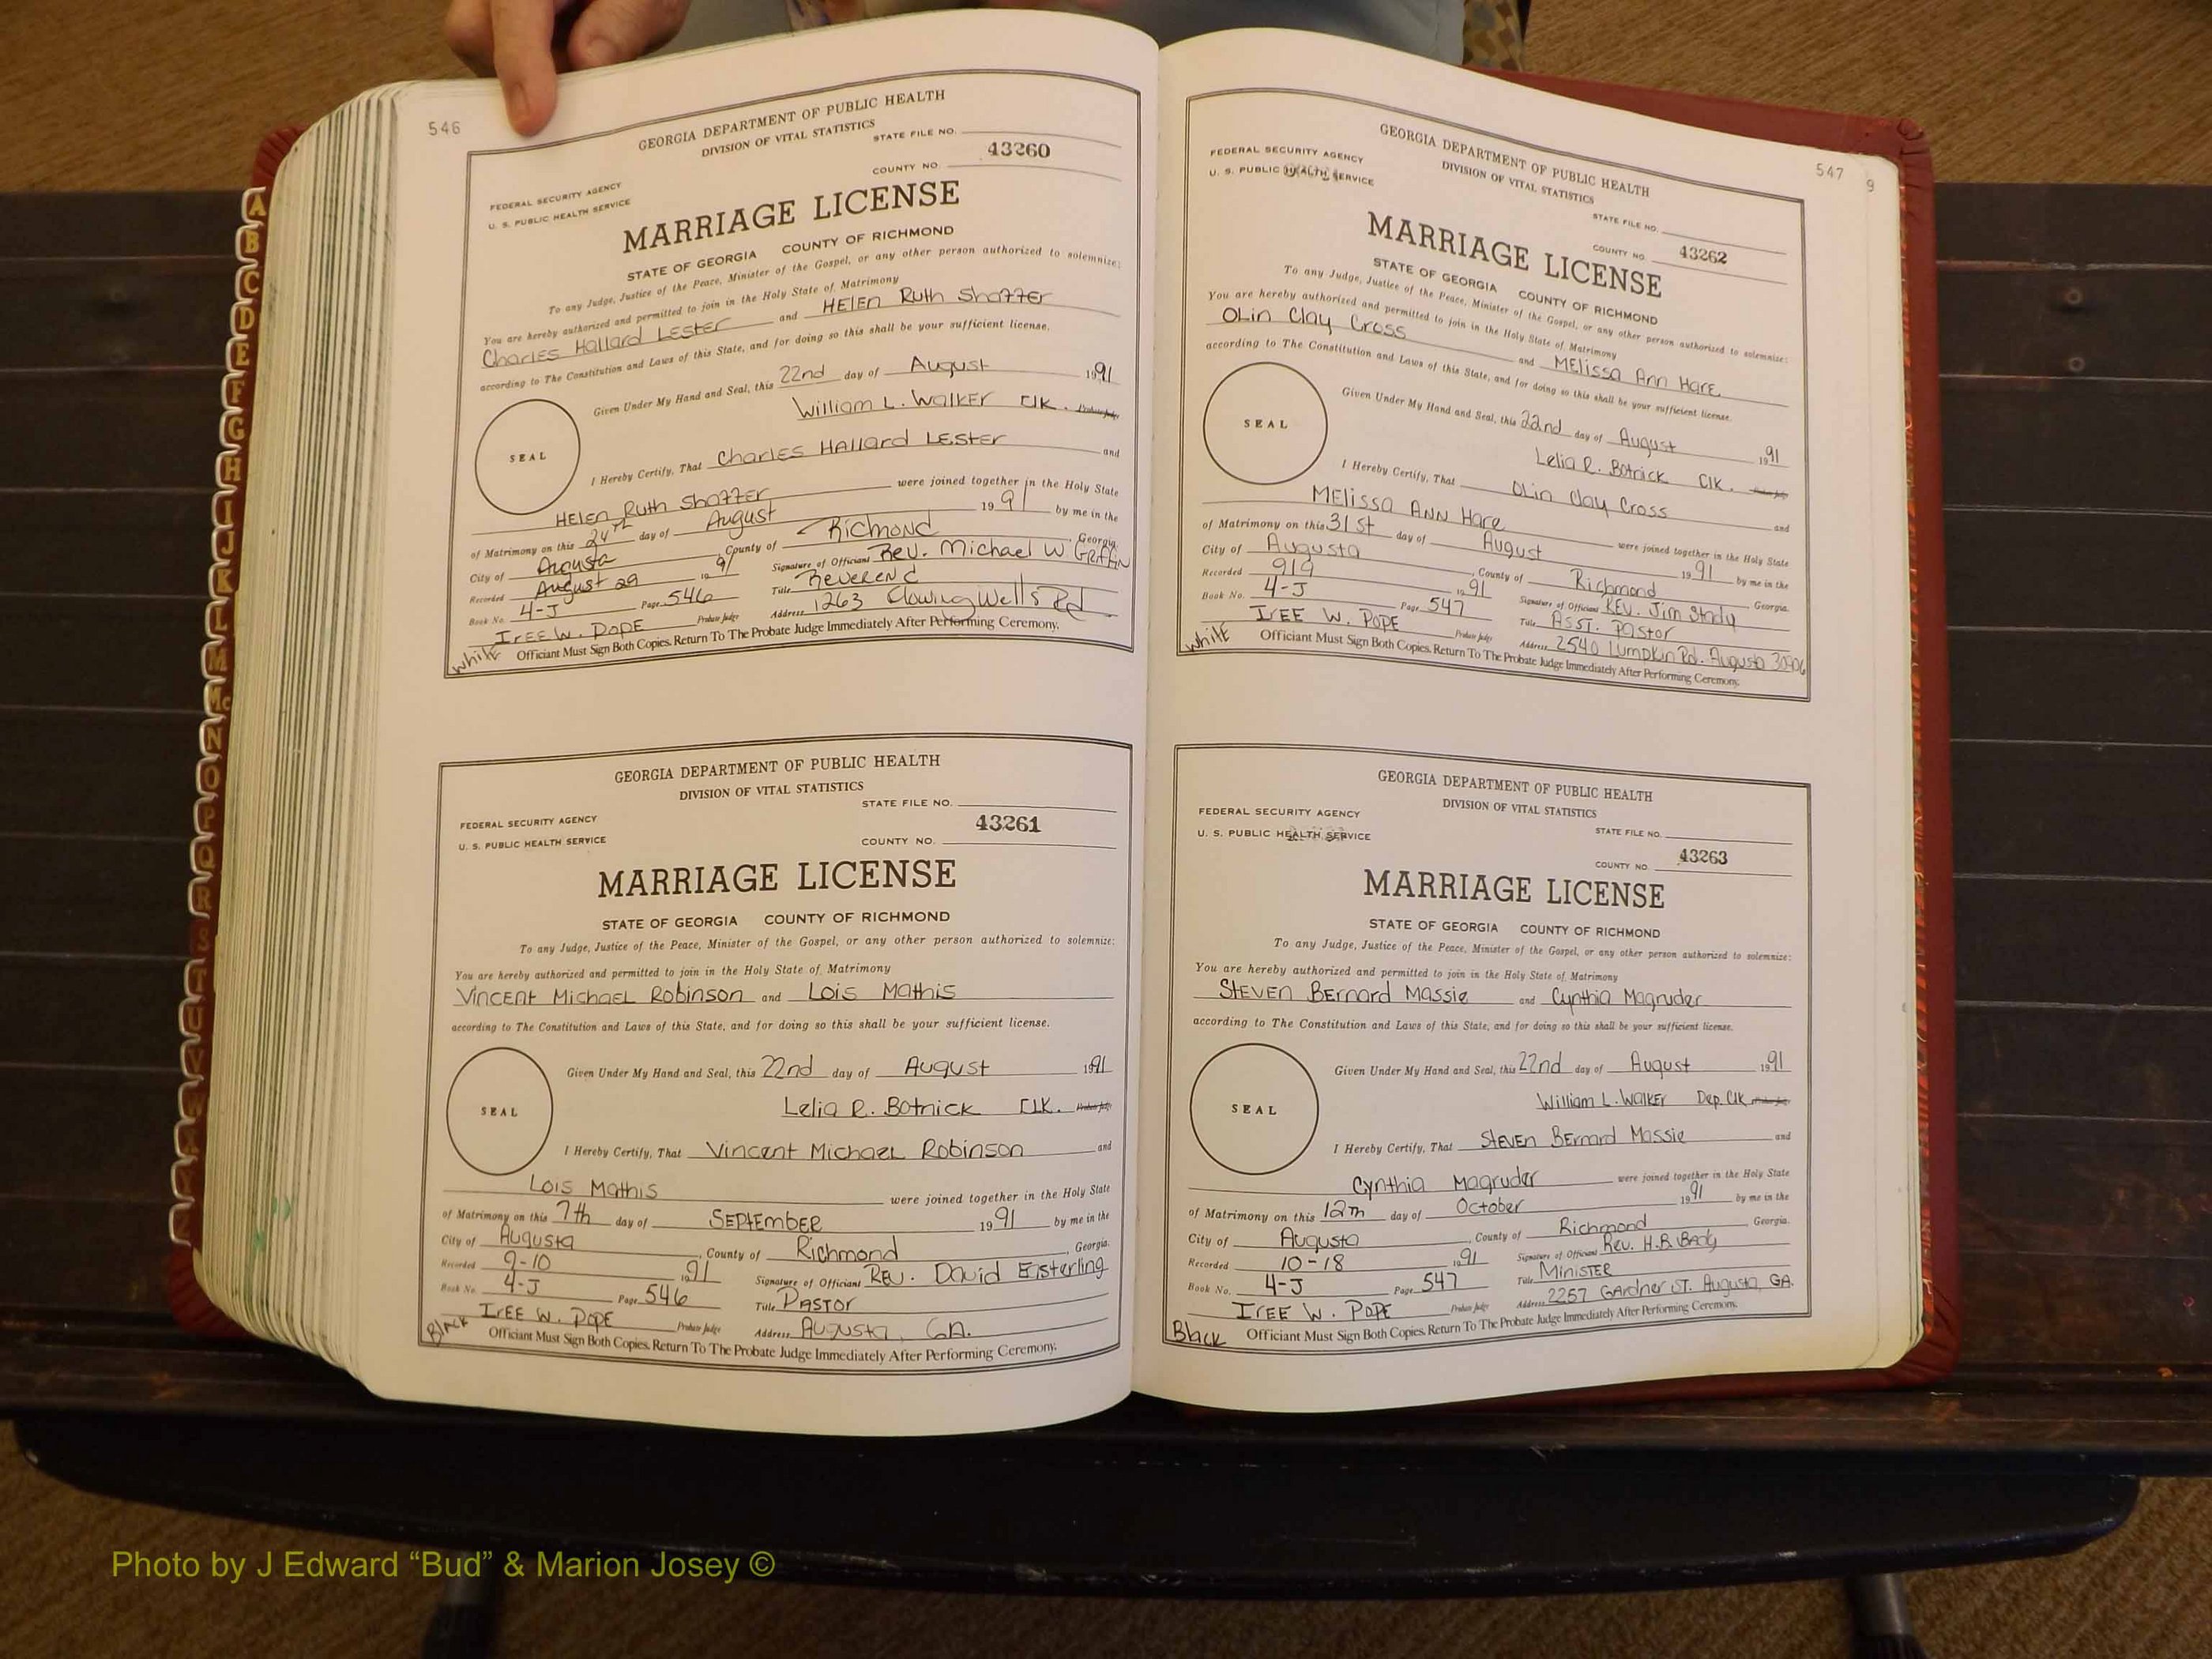 546
GEORGIA DEPARTMENT OF PUBLIC HEALTH
DIVISION OF VITAL STATISTICS
STATE FILE NO.
43260
COUNTY NO.
FEDERAL SECURITY AGENCY
U. S. PUBLIC HEALTH SERVICE
MARRIAGE LICENSE
STATE OF GEORGIA COUNTY OF RICHMOND
To any Judge, Justice of the Peace, Minister of the Gospel, or any other person authorized to solemnize:
You are hereby authorized and permitted to join in the Holy State of Matrimony
Charles Hallard Lester and HElEn Ruth
according to The Constitution and Laws of this State, and for doing so this shall be your sufficient license.
Given Under My Hand and Seal, this 22nd day of August 1991
William L. WalkEr Clk. Probate Judge
SEAL
I Hereby Certify, That CharlEs HAllard LEster and
HElEn Ruth were joined together in the Holy State
of Matrimony on this 24th day of August 1991 by me in the
City of Augusta County of Richmond, Georgia.
Recorded August 29 1991 Signature of Officiant Rev. Michael W Griffin
Book No. 4-J Page 546 Title Reverend
IrEE W. POPE Probate Judge Address 1263 Wells Rd
White Officiant Must Sign Both Copies. Return To The Probate Judge Immediately After Performing Ceremony.
GEORGIA DEPARTMENT OF PUBLIC HEALTH
DIVISION OF VITAL STATISTICS
STATE FILE NO.
FEDERAL SECURITY AGENCY
43261
U. S. PUBLIC HEALTH SERVICE
COUNTY NO.
MARRIAGE LICENSE
STATE OF GEORGIA COUNTY OF RICHMOND
To any Judge, Justice of the Peace, Minister of the Gospel, or any other person authorized to solemnize:
You are hereby authorized and permitted to join in the Holy State of Matrimony
VincEnt MichaEL Robinson and Lois Mathis
according to The Constitution and Laws of this State, and for doing so this shall be your sufficient license.
Given Under My Hand and Seal, this 22nd day of August 1991
Lelia R. Botnick CLK. Probate Judge
SEAL
I Hereby Certify, That Vincent MichaEL Robinson and
Lois Mathis were joined together in the Holy State
of Matrimony on this 7th day of SEPtEmber 1991 by me in the
City of Augusta, County of Richmond, Georgia.
Recorded 9-10 1991 Signature of Officiant REV. David Easterling
Book No. 4-J Page 546 Title PAstor
IrEE W. POPE Probate Judge Address Augusta, GA.
Black Officiant Must Sign Both Copies. Return To The Probate Judge Immediately After Performing Ceremony.
547 9
GEORGIA DEPARTMENT OF PUBLIC HEALTH
DIVISION OF VITAL STATISTICS
FEDERAL SECURITY AGENCY
U. S. PUBLIC HEALTH SERVICE
STATE FILE NO.
COUNTY NO. 43262
MARRIAGE LICENSE
STATE OF GEORGIA COUNTY OF RICHMOND
To any Judge, Justice of the Peace, Minister of the Gospel, or any other person authorized to solemnize:
You are hereby authorized and permitted to join in the Holy State of Matrimony
OLin Clay Cross and MElissa Ann HarE
according to The Constitution and Laws of this State, and for doing so this shall be your sufficient license.
Given Under My Hand and Seal, this 22nd day of August 1991
Lelia R. Botnick Clk. Probate Judge
SEAL
I Hereby Certify, That OLin Clay Cross and
MElissa ANN Hare were joined together in the Holy State
of Matrimony on this 31st day of August 1991 by me in the
City of Augusta, County of Richmond Georgia.
Recorded 919 1991 Signature of Officiant REV. Jim
Book No. 4-J Page 547 Title Asst. Pastor
IrEE W. POPE Probate Judge Address 2540 Lumpkin Rd. Augusta 30906
White Officiant Must Sign Both Copies. Return To The Probate Judge Immediately After Performing Ceremony.
GEORGIA DEPARTMENT OF PUBLIC HEALTH
DIVISION OF VITAL STATISTICS
FEDERAL SECURITY AGENCY
U. S. PUBLIC HEALTH SERVICE
STATE FILE NO.
COUNTY NO. 43263
MARRIAGE LICENSE
STATE OF GEORGIA COUNTY OF RICHMOND
To any Judge, Justice of the Peace, Minister of the Gospel, or any other person authorized to solemnize:
You are hereby authorized and permitted to join in the Holy State of Matrimony
StEVEn BErnard Massie and Cynthia Magruder
according to The Constitution and Laws of this State, and for doing so this shall be your sufficient license.
Given Under My Hand and Seal, this 22nd day of August 1991
William L. WalkEr Dep. Clk Probate Judge
SEAL
I Hereby Certify, That StEVEn BErnard Massie and
Cynthia Magruder were joined together in the Holy State
of Matrimony on this 12th day of October 1991 by me in the
City of Augusta, County of Richmond Georgia.
Recorded 10-18 1991 Signature of Officiant Rev. H.B.
Book No. 4-J Page 547 Title MinistEr
IrEE W. POPE Probate Judge Address 2257 Gardner ST. Augusta, GA.
Black Officiant Must Sign Both Copies. Return To The Probate Judge Immediately After Performing Ceremony.
A
B
C
D
E
F
G
H
I
J
K
L
M
Mc
N
O
P
Q
R
S
T
U
V
Photo by J Edward “Bud” & Marion Josey ©